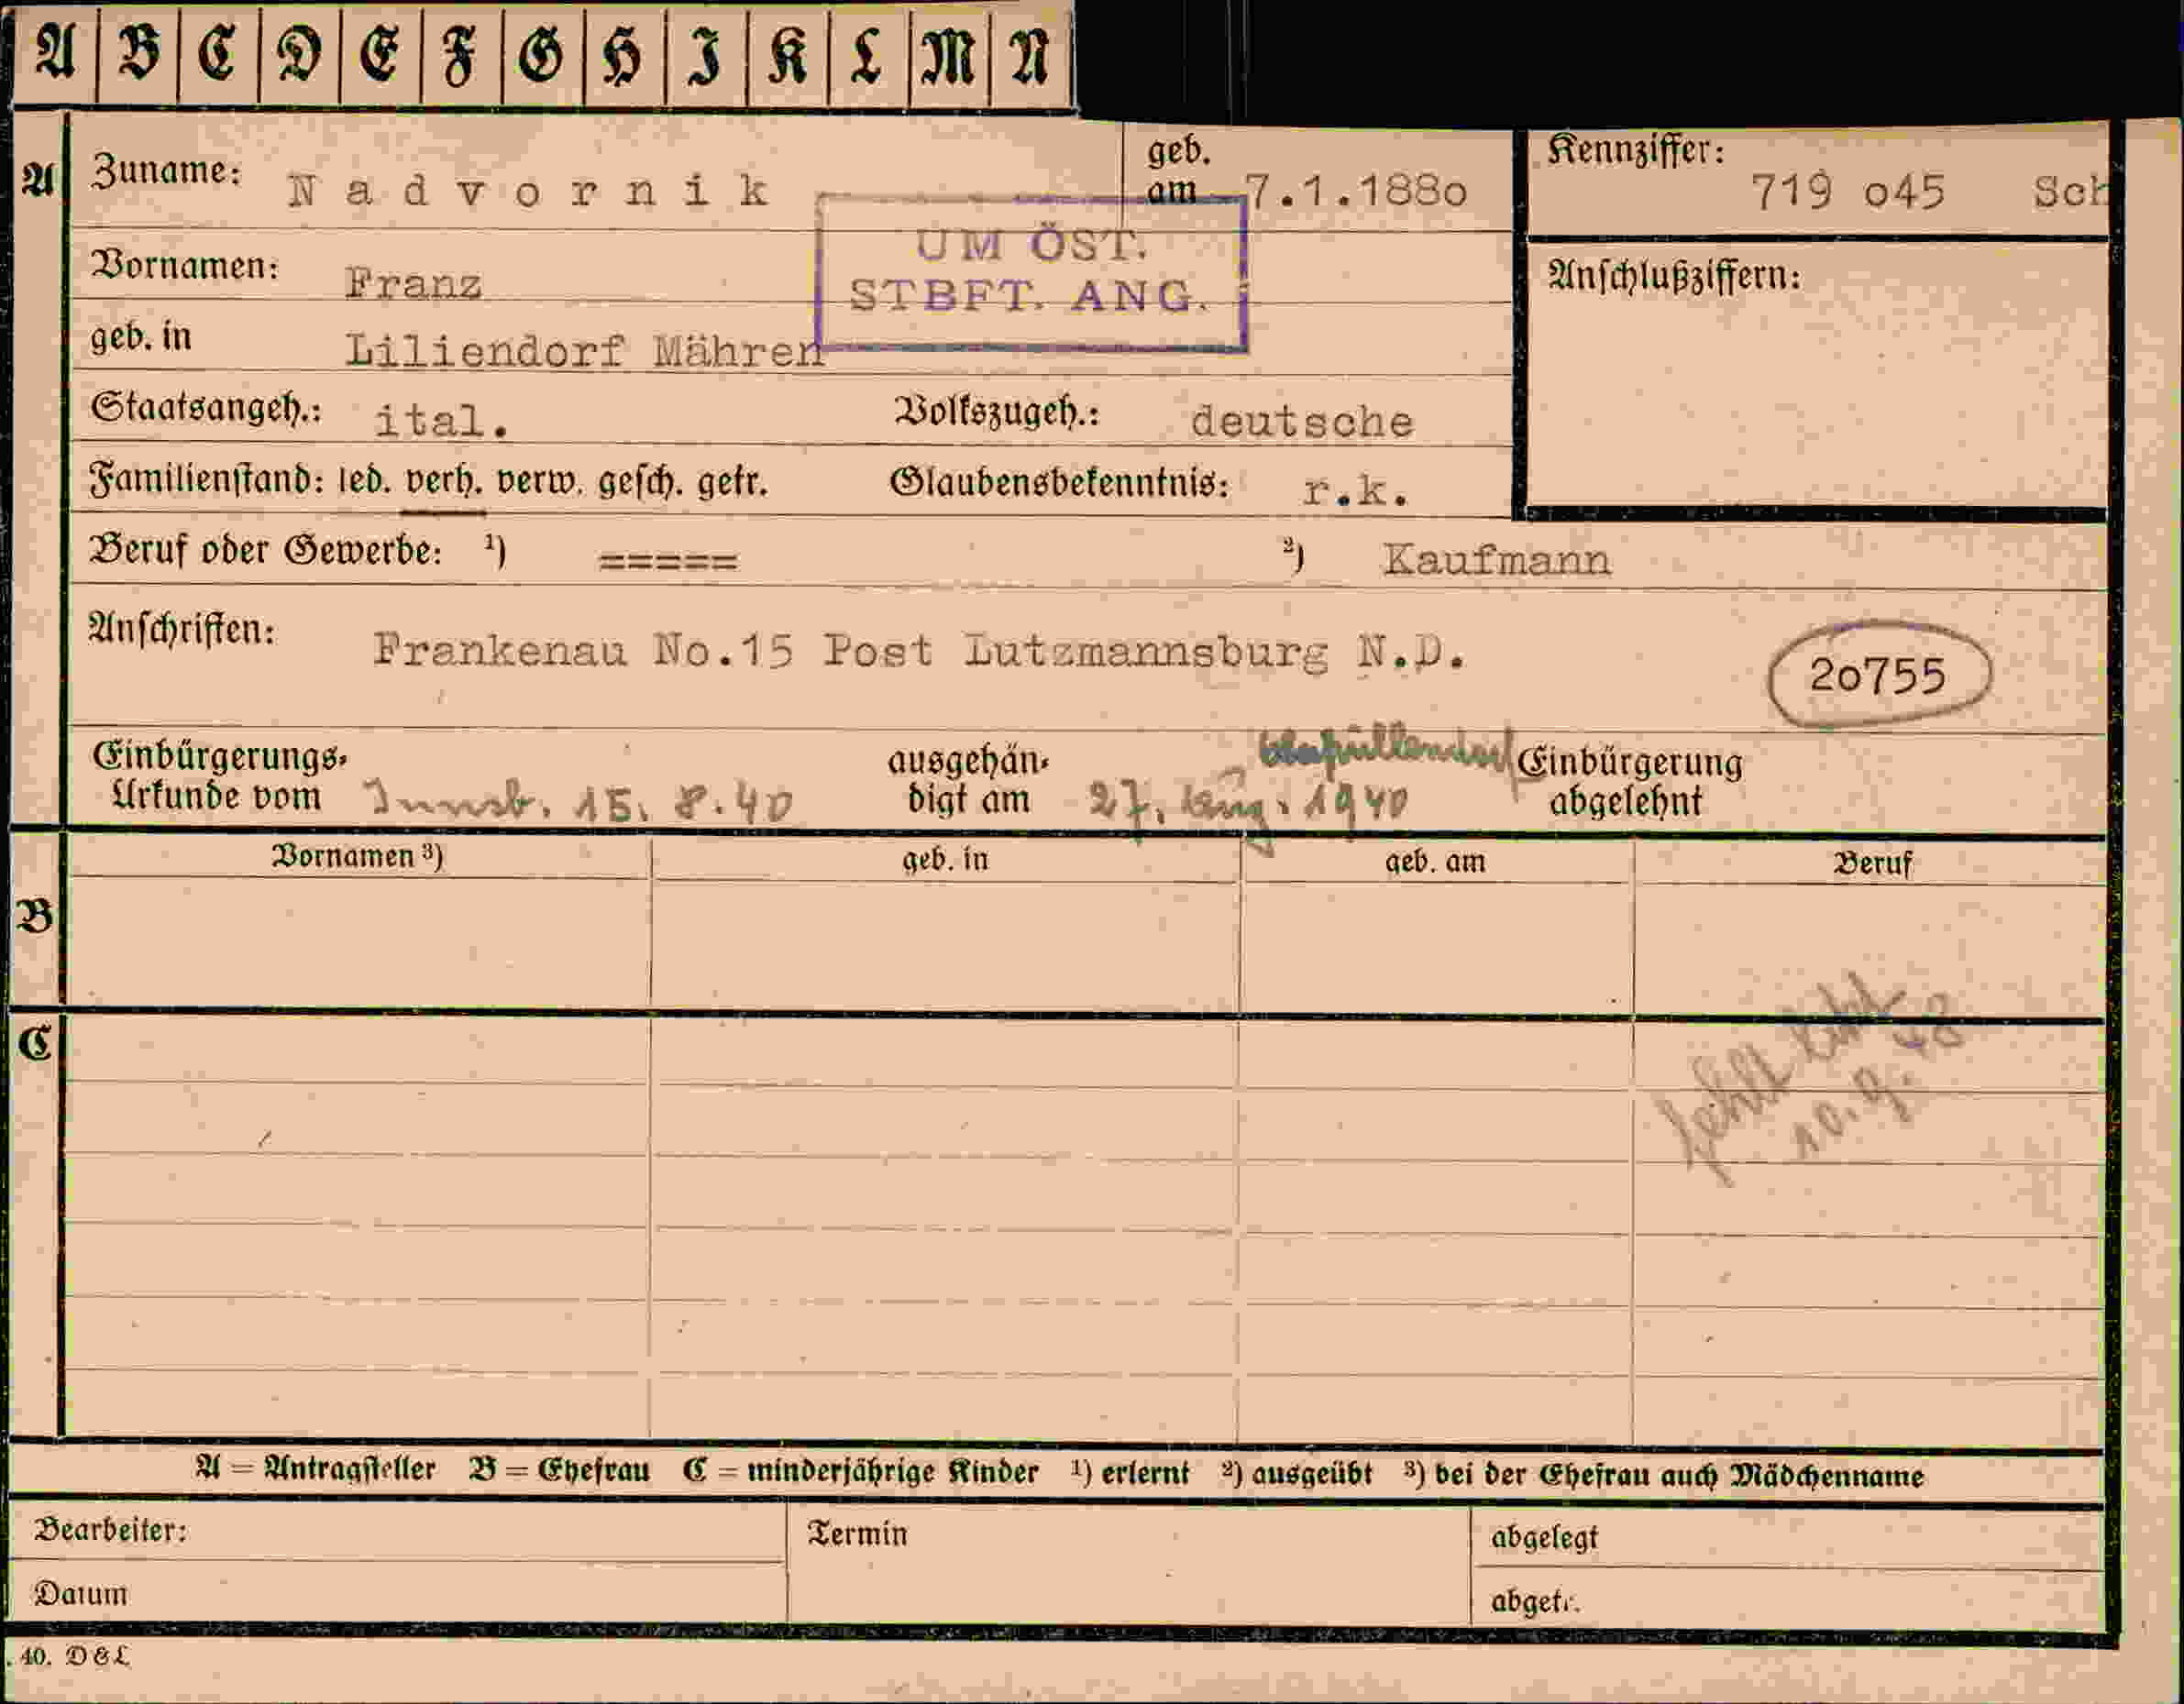 A B C D E F G H I K L M N
A Zuname: Nadvornik geb. am 7.1.188o Kennziffer: 719 o45 Sch
UM ÖST.
STBFT. ANG.
Vornamen: Franz
Anschlußziffern:
geb. in Liliendorf Mähren
Staatsangeh.: ital. Volkszugeh.: deutsche
Familienstand: led. verh. verw. gesch. getr. Glaubensbekenntnis: r.k.
Beruf oder Gewerbe: 1) ===== 2) Kaufmann
Anschriften: Frankenau No.15 Post Lutzmannsburg N.D.
2o755
Oberpullendorf
Einbürgerungs- ausgehän- Einbürgerung
Urkunde vom Innsb. 15. 8. 40 digt am 27. Aug. 1940 abgelehnt
Vornamen 3) geb. in geb. am Beruf
B
C
fehlt
10. 9. 48
A = Antragsteller B = Ehefrau C = minderjährige Kinder 1) erlernt 2) ausgeübt 3) bei der Ehefrau auch Mädchenname
Bearbeiter: Termin abgelegt
Datum abgetr.
. 40. D & L